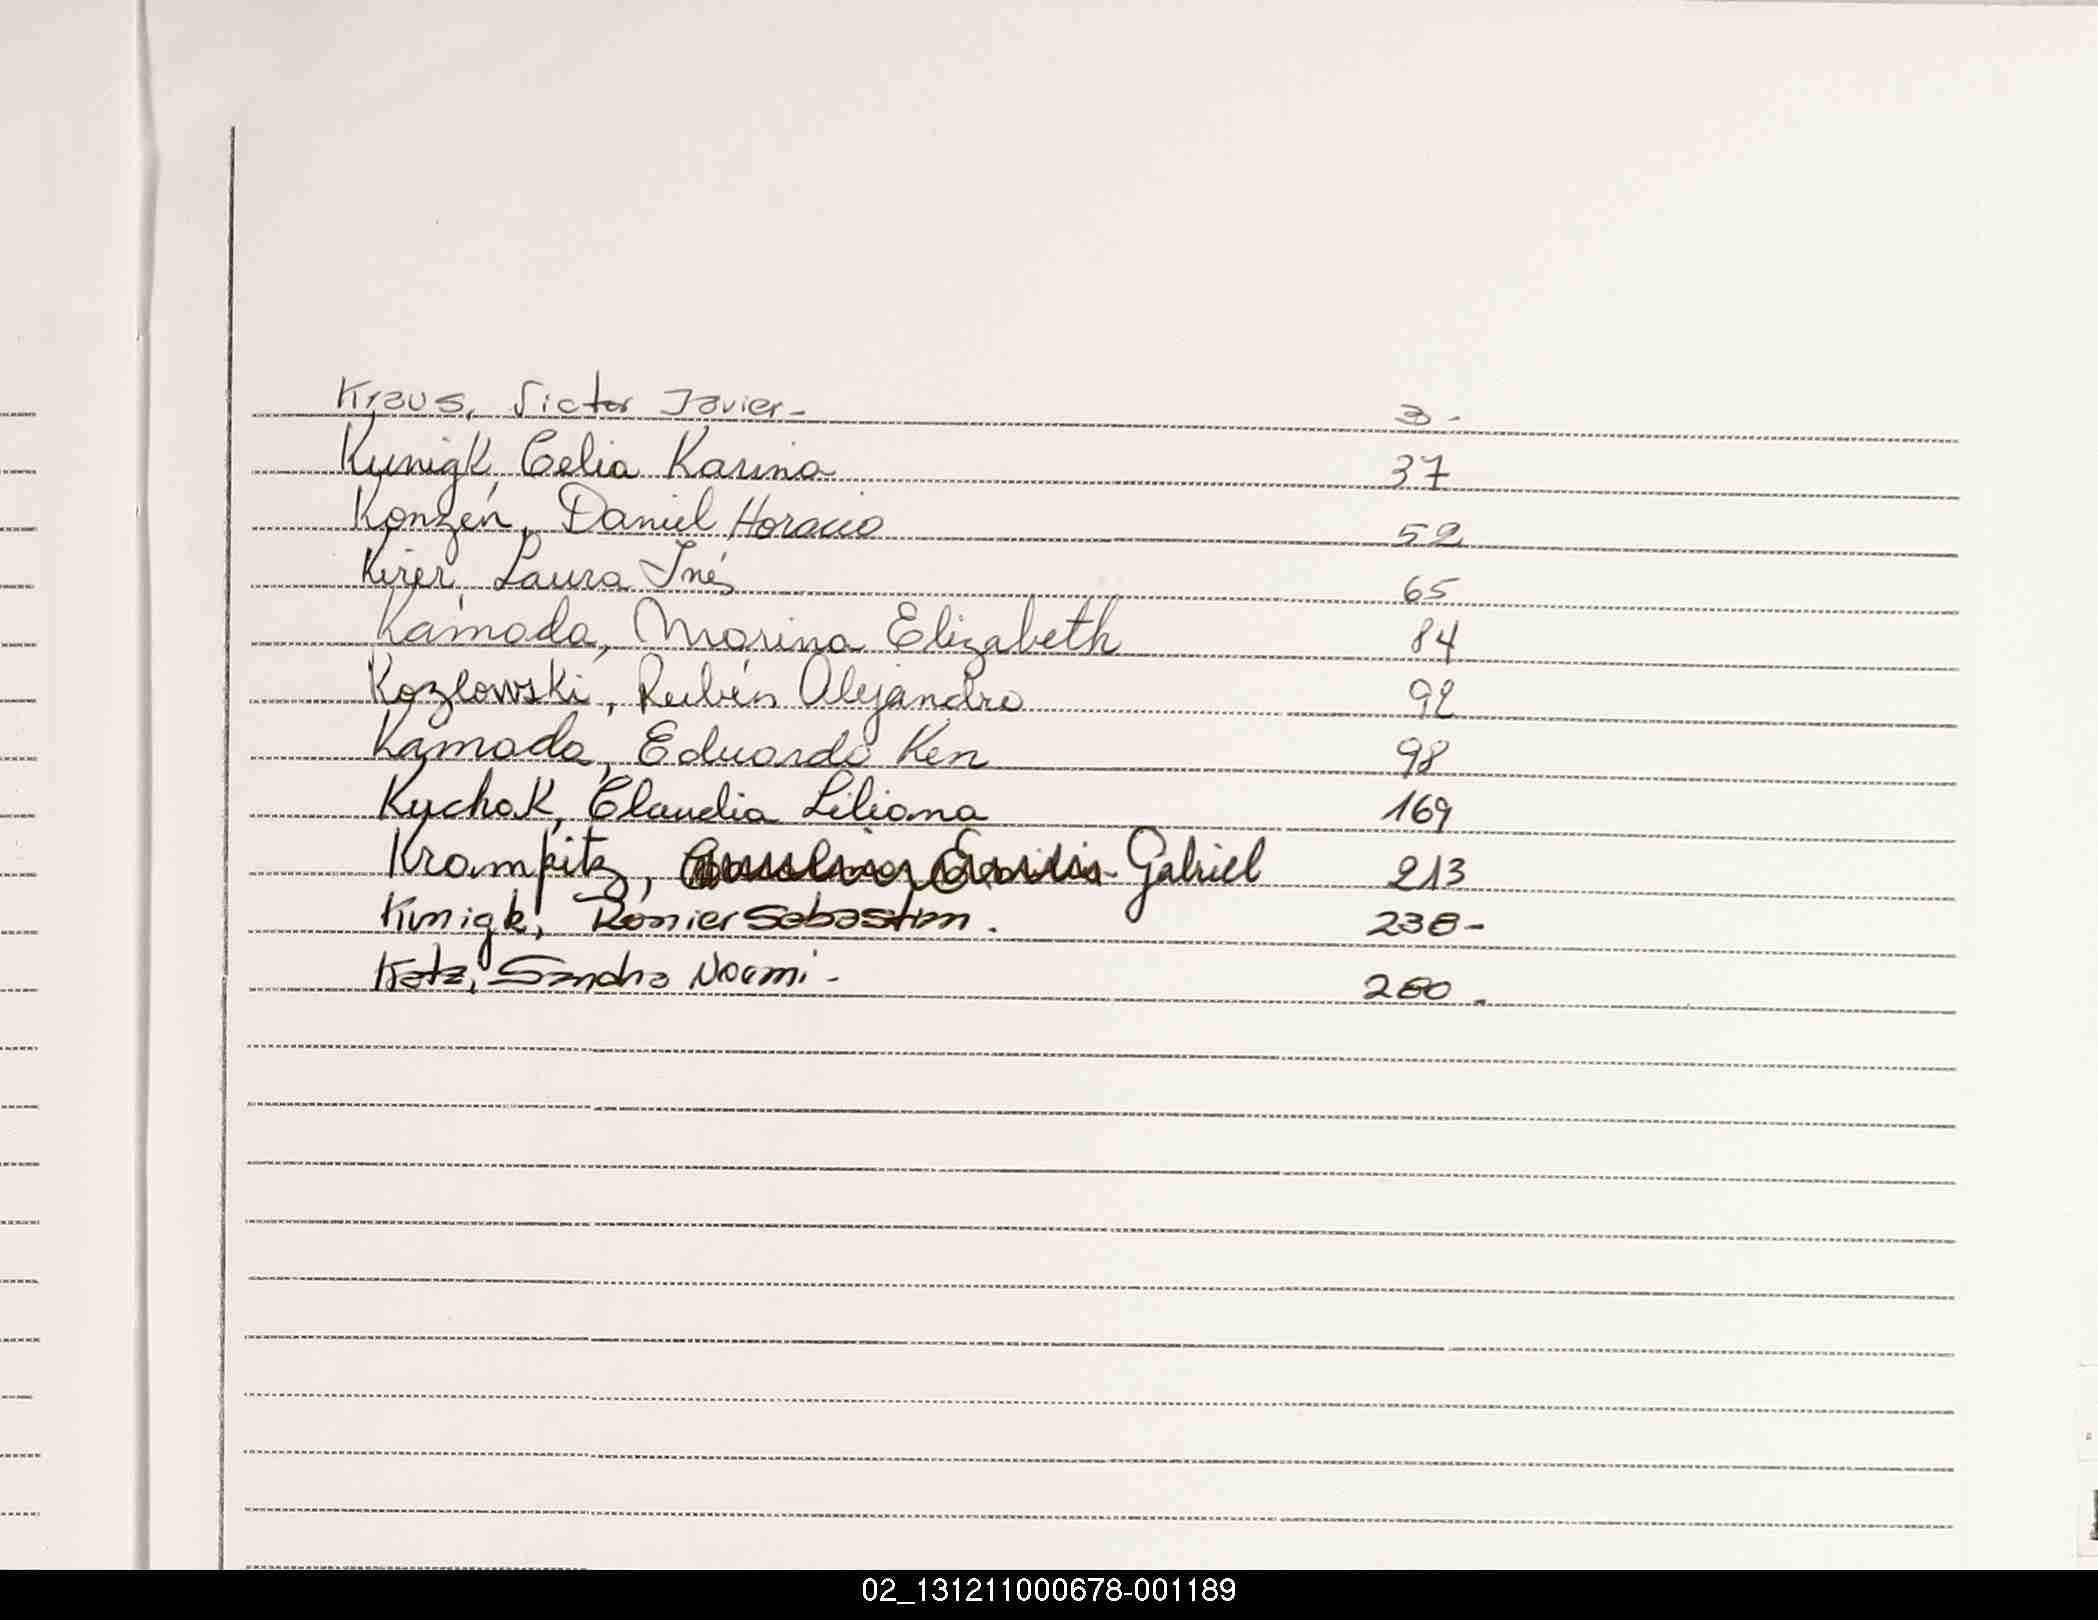 Kraus, Victor Javier- 3-
Kunigk, Celia Karina 37
Konzén, Daniel Horacio 52
Kirer, Laura Inés 65
Kamada, Marina Elizabeth 84
Kozlowski, Rubén Alejandro 92
Kamada, Eduardo Ken 98
Kuchak, Claudia Liliana 169
Krampitz, Gabriel 213
Kunigk, Sebastian. 238-
Katz, Sandra Noemi- 280.
02_131211000678-001189